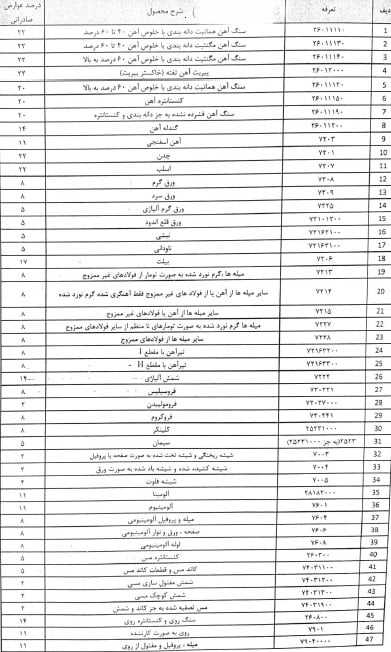 ردیف تعرفه شرح محصول درصد عوارض صادراتی
1 ۲۶۰۱۱۱۱۰ سنگ آهن هماتیت دانه بندی با خلوص آهن ۴۰ تا ۶۰ درصد ۲۲
2 ۲۶۰۱۱۱۳۰ سنگ آهن مگنتیت دانه بندی با خلوص آهن ۴۰ تا ۶۰ درصد ۲۲
3 ۲۶۰۱۱۱۴۰ سنگ آهن مگنتیت دانه بندی با خلوص آهن ۶۰ درصد به بالا ۲۲
4 ۲۶۰۱۲۰۰۰ پیریت آهن تفته (خاکستر پیریت) ۲۲
5 ۲۶۰۱۱۱۲۰ سنگ آهن هماتیت دانه بندی با خلوص آهن ۶۰ درصد به بالا ۲۰
6 ۲۶۰۱۱۱۵۰ کنسانتره آهن ۲۰
7 ۲۶۰۱۱۱۹۰ سنگ آهن فشرده نشده به جز دانه بندی و کنسانتره ۲۰
8 ۲۶۰۱۱۲۰۰ گندله آهن ۱۴
9 ۷۲۰۳ آهن اسفنجی ۱۱
10 ۷۲۰۱ چدن ۲۲
11 ۷۲۰۷ اسلب ۲۲
12 ۷۲۰۸ ورق گرم ۸
13 ۷۲۰۹ ورق سرد ۸
14 ۷۲۲۵ ورق گرم آلیاژی ۵
15 ۷۲۱۰۱۲۰۰ ورق قلع اندود ۵
16 ۷۲۱۶۲۱۰۰ نبشی ۵
17 ۷۲۱۶۳۱۰۰ ناودانی ۵
18 ۷۲۰۶ بیلت ۱۷
19 ۷۲۱۳ میله ها ،گرم نورد شده به صورت تومار از فولادهای غیر ممزوج ۸
20 ۷۲۱۴ سایر میله ها از آهن یا از فولاد های غیر ممزوج فقط آهنگری شده گرم نورد شده ۸
21 ۷۲۱۵ سایر میله ها از آهن یا فولادهای غیر ممزوج ۸
22 ۷۲۲۷ میله ها گرم نورد شده به صورت تومارهای نا منظم از سایر فولادهای ممزوج ۸
23 ۷۲۲۸ سایر میله ها از فولادهای ممزوج ۸
24 ۷۲۱۶۳۲۰۰ تیرآهن با مقطع I ۸
25 ۷۲۱۶۳۳۰۰ تیرآهن با مقطع H ۸
26 ۷۲۲۴ شمش آلیاژی ۱۴
27 فروسیلیس ۸
28 ۷۲۰۲۷۰۰۰ فرومولیبدن ۲
29 فروکروم ۸
30 ۲۵۲۳۱۰۰۰ کلینکر ۸
31 ۲۵۲۳(به جز ۲۵۲۳۱۰۰۰) سیمان ۵
32 ۷۰۰۳ شیشه ریختگی و شیشه تخت شده به صورت صفحه یا پروفیل ۲
33 ۷۰۰۴ شیشه کشیده شده و شیشه باد شده به صورت ورق ۲
34 ۷۰۰۵ شیشه فلوت ۲
35 ۲۸۱۸۲۰۰۰ آلومینا ۱۱
36 ۷۶۰۱ آلومینیوم ۱۱
37 ۷۶۰۴ میله و پروفیل آلومینیومی ۸
38 ۷۶۰۶ صفحه ، ورق و نوار آلومینیومی ۸
39 ۷۶۰۸ لوله آلومینیومی ۸
40 ۲۶۰۳۰۰ کنسانتره مس ۵
41 ۷۴۰۳۱۱۰۰ کاتد و قطعات کاتد مس ۵
42 ۷۴۰۳۱۲۰۰ شمش مفتول سازی مسی ۲
43 ۷۴۰۳۱۳۰۰ شمش کوچک مسی ۲
44 ۷۴۰۳۱۹۰۰ مس تصفیه شده به جز کاتد و شمش ۲
45 ۲۶۰۸۰۰ سنگ روی و کنسانتره روی ۱۴
46 ۷۹۰۱ روی به صورت کارنشده ۱۱
47 ۷۹۰۴۰۰۰۰ میله ، پروفیل و مفتول از روی ۱۱